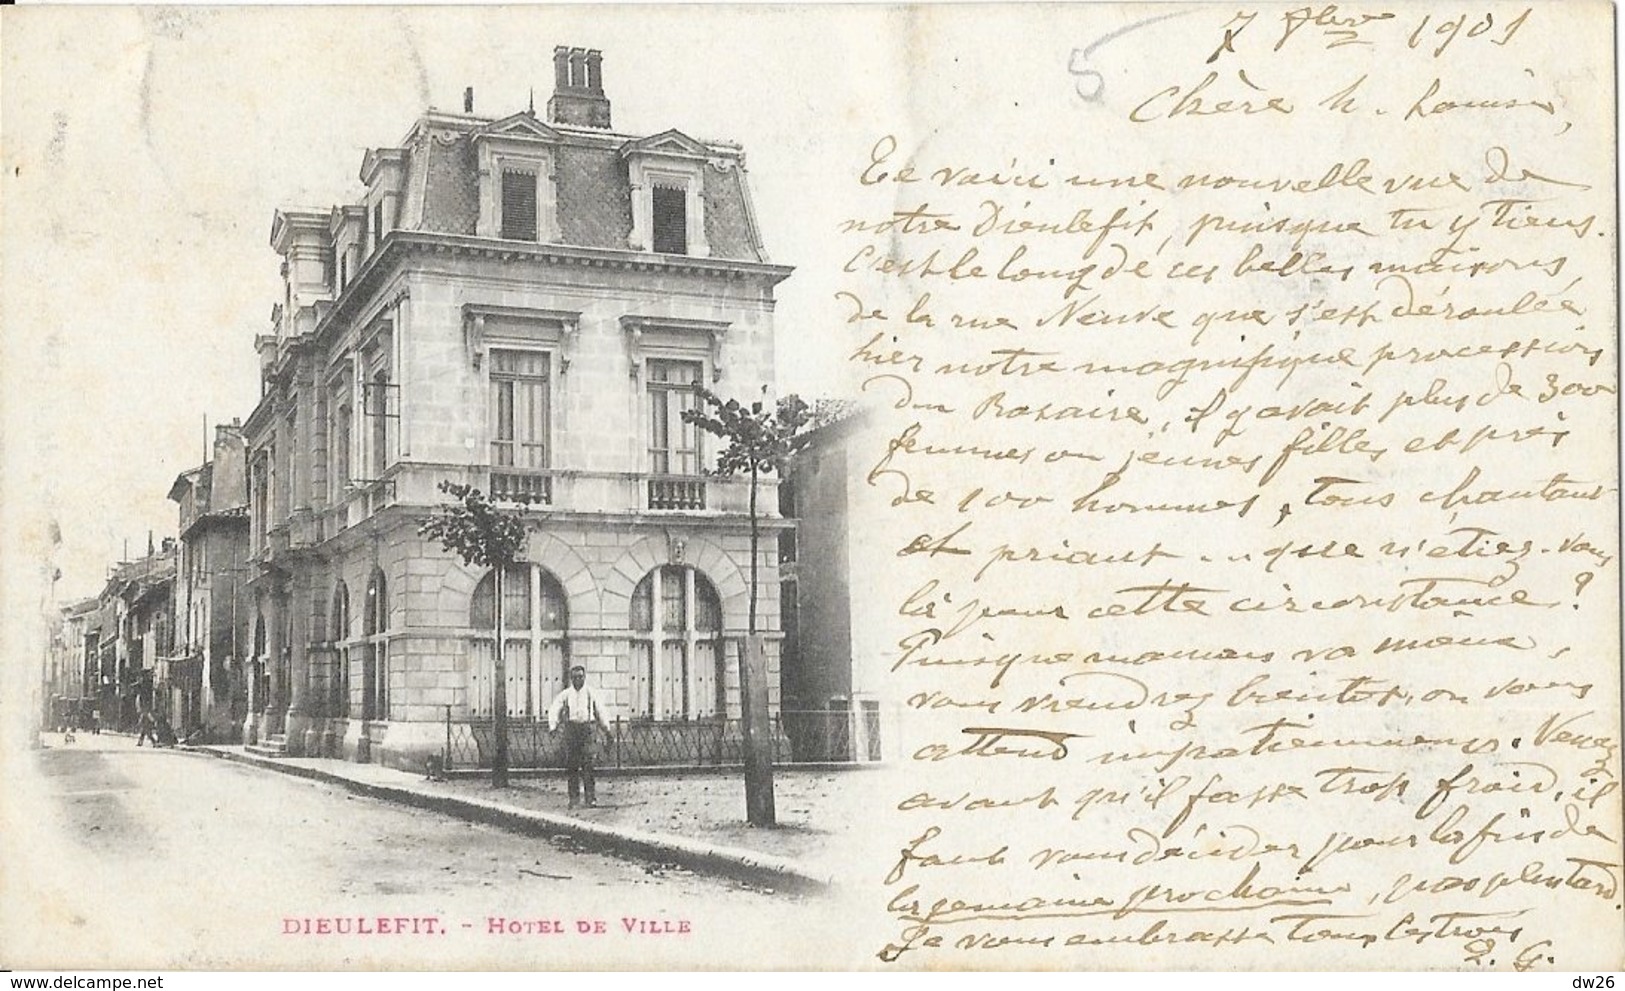 7 8bre 1901
Chère M. Louise,
Te voici une nouvelle vue de
notre Dieulefit, puisque tu y tiens.
C'est le long de ces belles maisons,
de la rue Neuve que s'est déroulée
hier notre magnifique procession
du Rosaire, il y avait plus de 300
femmes ou jeunes filles et près
de 100 hommes, tous chantant
et priant ... que n'étiez-vous
là pour cette circonstance ?
Puisque maman va mieux,
vous viendrez bientôt, on vous
attend impatiemment. Venez
avant qu'il fasse trop froid, il
faut vous décider pour la fin de
la semaine prochaine, pas plus tard.
Je vous embrasse tous les trois
G.
5
DIEULEFIT. - HOTEL DE VILLE
dw26